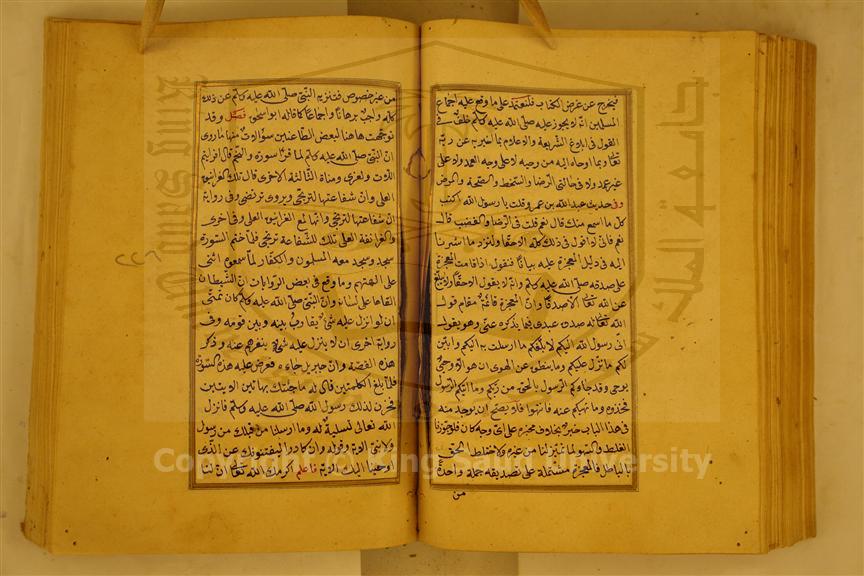 فيخرج عن غرض الكتاب فلنعتمد على ما وقع عليه اجماع
المسلمين انه لا يجوز عليه صلى الله عليه وسلم خلف في
القول في ابلاغ الشريعة والاعلام بما اخبر به عن ربه
تعالى وما اوحاه اليه من وحيه لا على وجه العمد ولا على
غير عمد ولا في حالتي الرضا والسخط والصحة والمرض
وفى حديث عبد الله بن عمرو قلت يا رسول الله اكتب
كل ما اسمع منك قال نعم قلت في الرضا والغضب قال
نعم فانى لا اقول في ذلك كله الا حقا ولنزد ما اشرنا
اليه في دليل المعجزة عليه بيانا فنقول اذا قامت المعجزة
على صدقه صلى الله عليه وسلم وانه لا يقول الا حقا ولا يبلغ
عن الله تعالى الا صدقا وان المعجزة قائمة مقام قول
الله تعالى له صدقت عبدى فيما يذكره عنى وهو يقول
انى رسول الله اليكم لابلغكم ما ارسلت به اليكم وابين
لكم ما نزل عليكم وما ينطق عن الهوى ان هو الا وحى
يوحى وقد جاءكم الرسول بالحق من ربكم وما آتيكم الرسول
فخذوه وما نهيكم عنه فانتهوا فلا يصح ان يوجد منه
في هذا الباب خبر بخلاف مخبره على اى وجه كان فلو جوزنا
الغلط والسهو لما تميز لنا من غيره ولاختلط الحق
بالباطل فالمعجزة مشتملة على تصديقه جملة واحدة
من
من غير خصوص فتنزيه النبى صلى الله عليه وسلم عن ذلك
كله واجب برهانا واجماعا كما قاله ابو اسحق فصل وقد
توجهت هاهنا لبعض الطاعنين سؤالات منها ما روى
ان النبى صلى الله عليه وسلم لما قرأ سورة والنجم قال افرايتم
اللات والعزى ومناة الثالثة الاخرى قال تلك الغرانيق
العلى وان شفاعتها لترتجى ويروى ترتضى وفى رواية
ان شفاعتها لترتجى وانها لمع الغرانيق العلى وفى اخرى
والغرانقة العلى تلك للشفاعة ترتجى فلما ختم السورة
سجد وسجد معه المسلمون والكفار لما سمعوه اثنى
على آلهتهم وما وقع في بعض الروايات ان الشيطان
القاها على لسانه وان النبى صلى الله عليه وسلم كان تمنى
ان لو انزل عليه شئ يقارب بينه وبين قومه وفى
رواية اخرى ان لا ينزل عليه شئ ينفرهم عنه وذكر
هذه القصة وان جبريل جاءه فعرض عليه هذه السورة
فلما بلغ الكلمتين قال له ما جئتك بهاتين الايتين
فحزن لذلك رسول الله صلى الله عليه وسلم فانزل
الله تعالى تسلية له وما ارسلنا من قبلك من رسول
ولا نبى الاية وقوله وان كادوا ليفتنونك عن الذى
اوحينا اليك الاية فاعلم اكرمك الله تعالى ان لنا
Copyright © King Saud University
King Saud University
جامعة الملك سعود